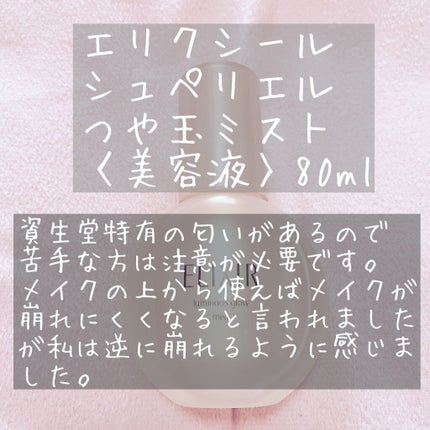 エリクシール
シュペリエル
つや玉ミスト
〈美容液〉80ml
資生堂特有の匂いがあるので
苦手な方は注意が必要です。
メイクの上から使えばメイクが
崩れにくくなると言われました
が私は逆に崩れるように感じま
した。
ELIXIR
luminous glow
mist